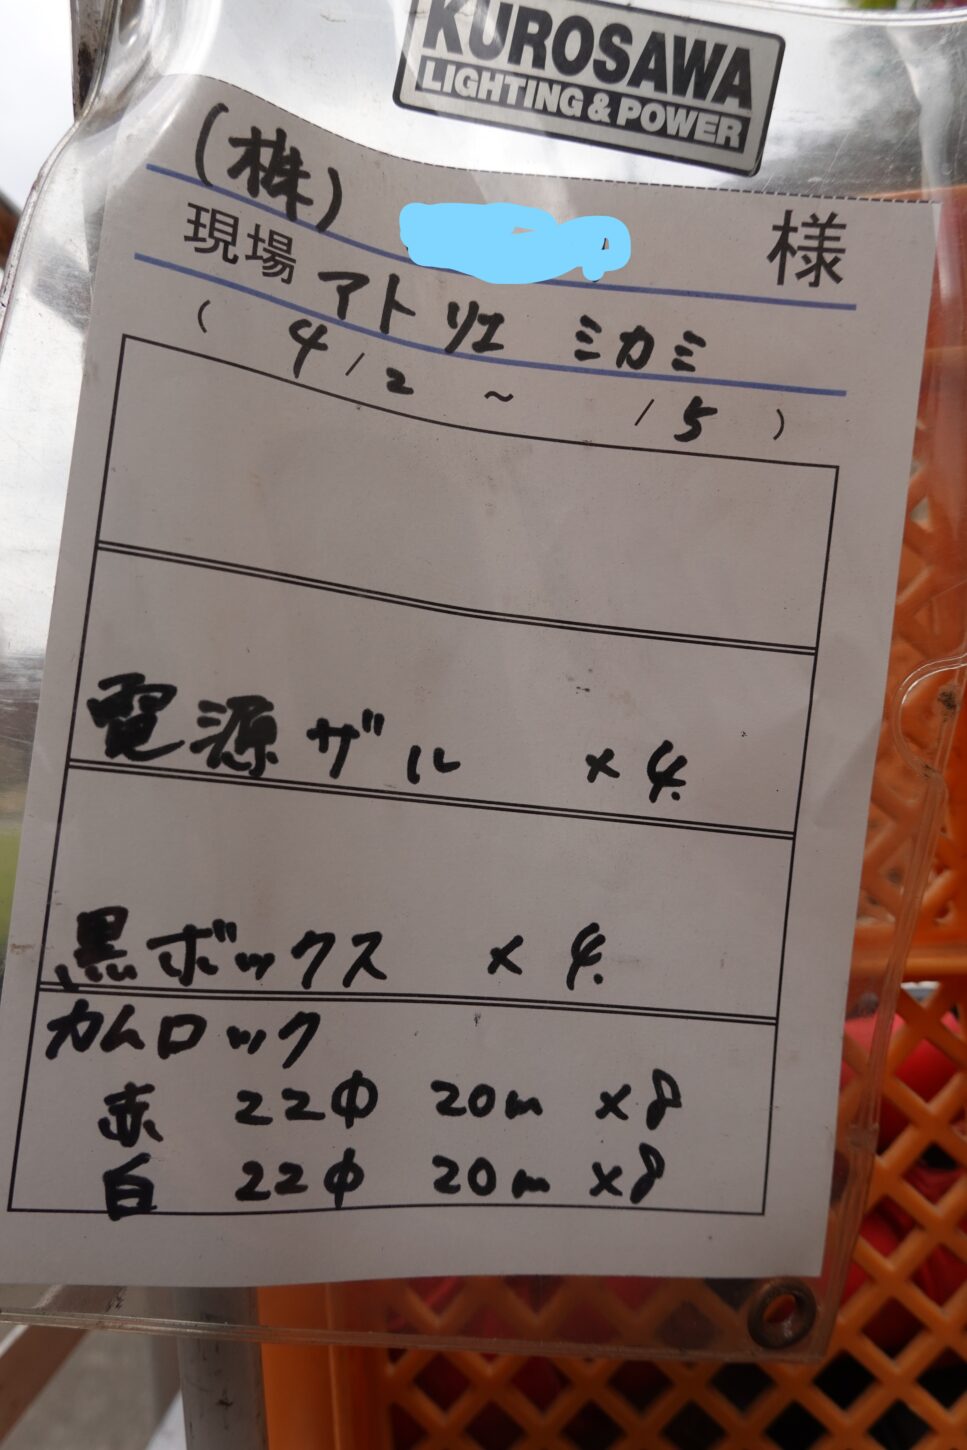 KUROSAWA
LIGHTING & POWER
(株) 様
現場 アトリエ ミカミ
( 4/2 ~ /5 )
電源ザル ×4.
黒ボックス ×4.
カムロック
赤 22φ 20m ×8
白 22φ 20m ×8